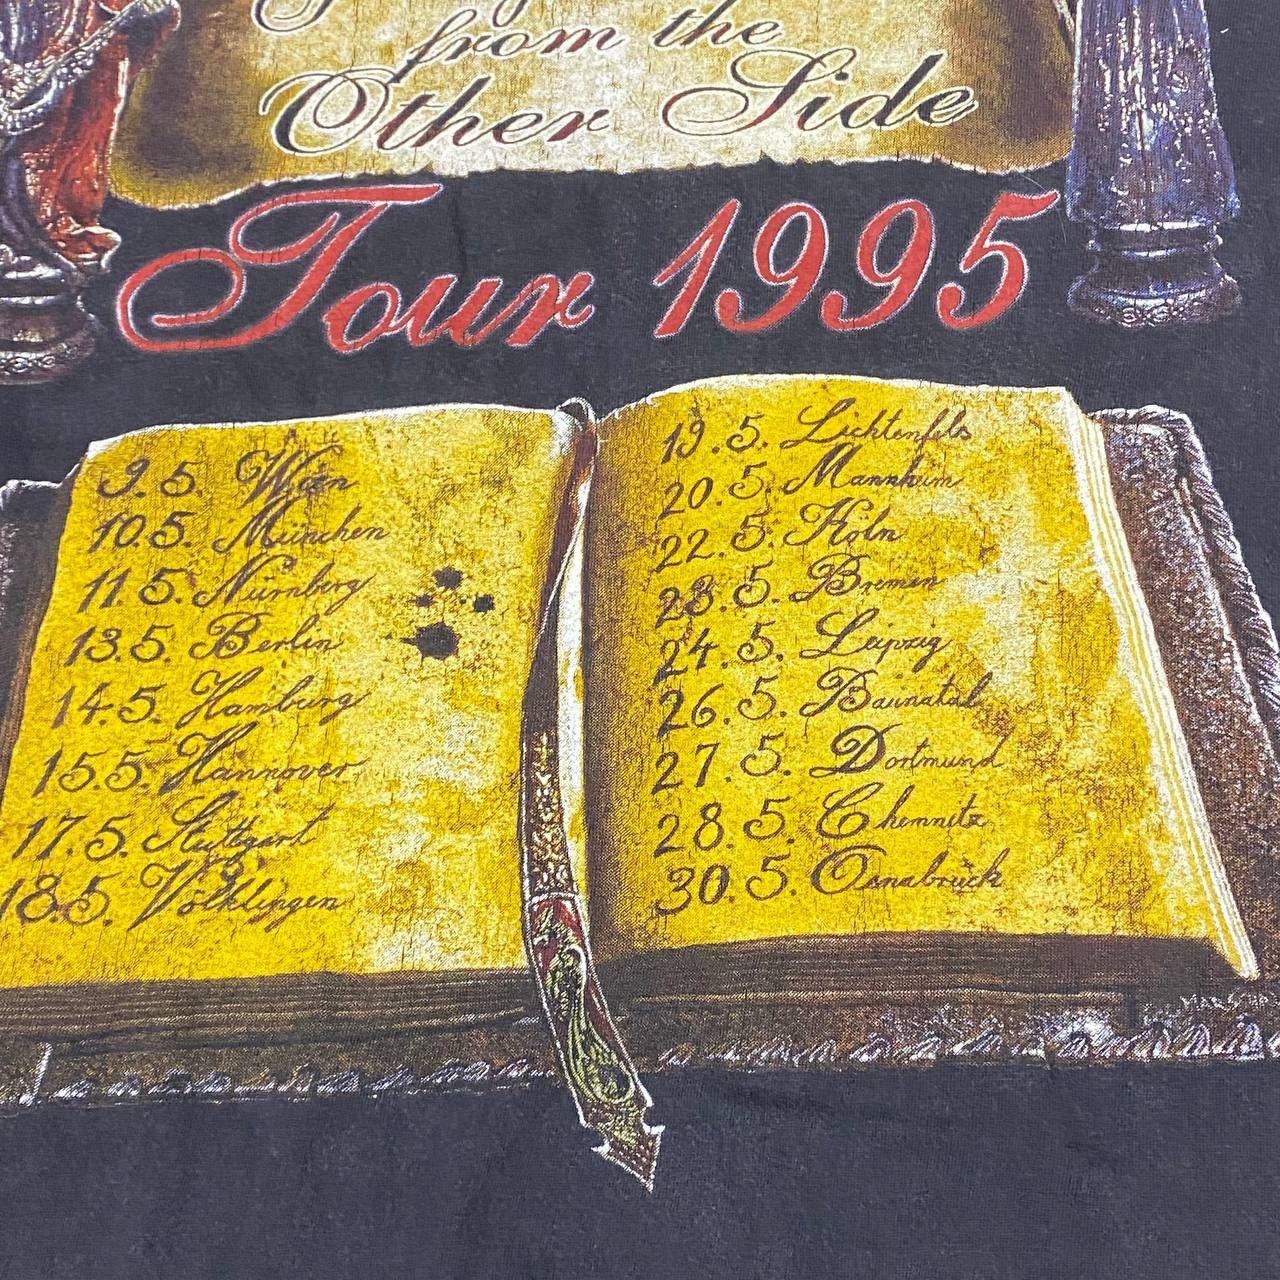 from the
Other Side
Tour 1995
9. 5. Wien
10. 5. München
11. 5. Nürnberg
13. 5. Berlin
14. 5. Hamburg
15. 5. Hannover
17. 5. Stuttgart
18. 5. Völklingen
19. 5. Lichtenfels
20. 5. Mannheim
22. 5. Köln
23. 5. Bremen
24. 5. Leipzig
26. 5. Baunatal
27. 5. Dortmund
28. 5. Chemnitz
30. 5. Osnabrück